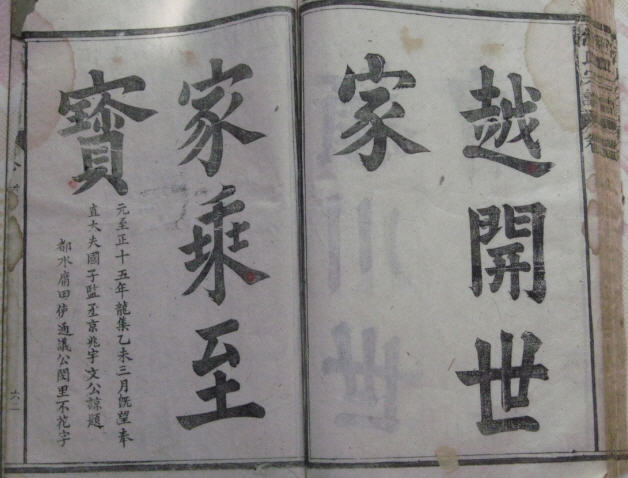 越開世
家
家乘至
寶
元至正十五年龍集乙未三月旣望奉
直大夫國子監丞京兆宇文公諒題
都水庸田使通議公閏里不花字
六二